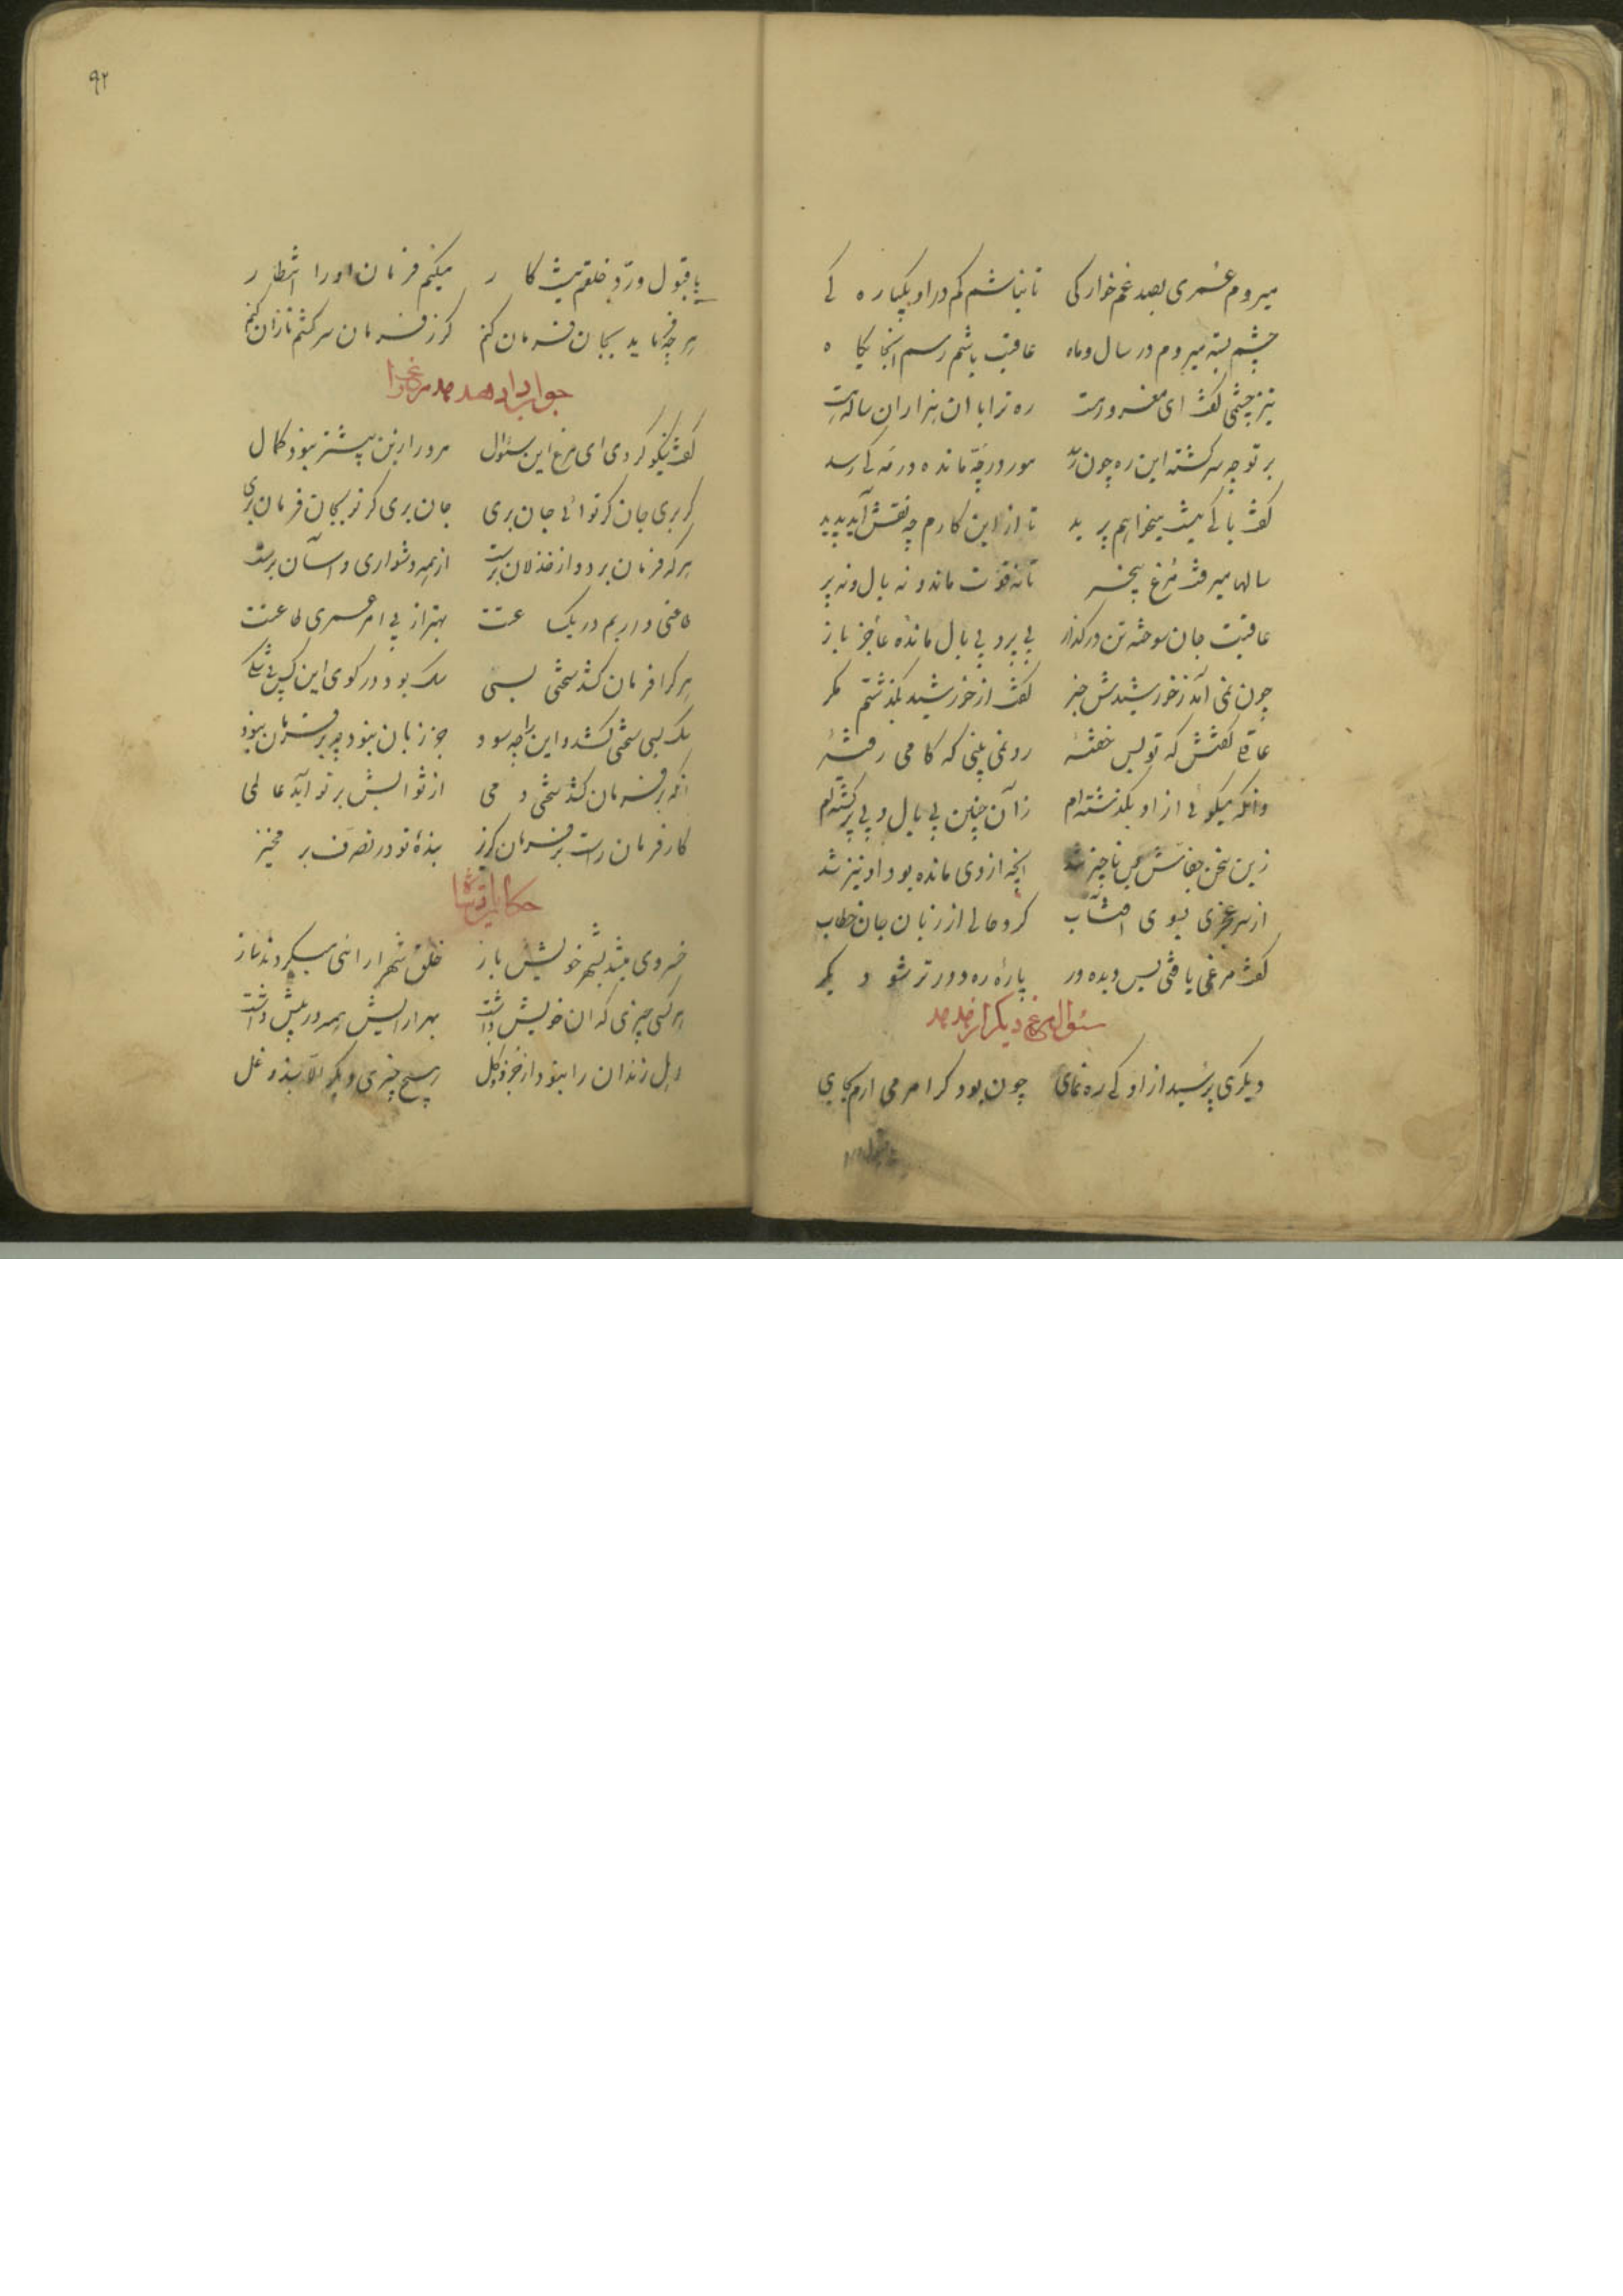 میروم عمری بصد غم خوارکی تا نباشم کم در او یکباره کی
چشم بسته میروم در سال و ماه عاقبت باشم رسم آنجایکاه
تیز چشمی کفت ای مغرور مست ره ترا با آن هزاران ساله است
بر تو چه سرکشته این ره چون رسد مور در چه مانده در مه کی رسد
کفت باکی نیست میخواهم پرید تا از این کارم چه نقش آید پدید
سالها میرفت مرغ بیخبر تا نه قوت ماند و نه بال و نه پر
عاقبت جان سوخته تن در کداز بی پر و بی بال مانده عاجز باز
چون نمی آمد ز خورشیدش خبر کفت از خورشید بکذشتم مکر
عاقلی کفتش که تو بس خفتهٔ ره نمی بینی که کامی رفتهٔ
وانکه میکوئی از او بکذشته‌ام زآن چنین بی بال و بی پر کشته‌ام
زین سخن خفاش بس ناچیز شد انچه از وی مانده بود او نیز شد
از سر عجزی بسوی افتاب کرد حالی از زبان جان خطاب
کفت مرغی یافتی بس دیده ور پارهٔ ره دورتر شو دیکر
سئوال مرغ دیکر از هدهد
دیکری پرسید از او کی ره نمای چون بود کر امر می ارم بجای
۹۲
با قبول و رد خلقم نیست کار میکنم فرمان او را انتظار
هر چه فرماید بجان فرمان کنم کر ز فرمان سر کشم تاوان کنم
جواب دادن هدهد مرغ را
کفت نیکو کردی ای مرغ این سئوال مرد را زین پیشتر نبود کمال
کی بری جان کر توانی جان بری جان بری کر تو بجان فرمان بری
هر که فرمان برد و از خذلان برست از همه دشواری و آسان برست
طاعتی در امر در یک ساعتت بهتر از بی امر عمری طاعتت
هر که را فرمان کشد سختی بسی سک بود در کوی این کس نی کسی
سک بسی سختی کشد و این را چه سود جز زیان نبود چو بر فرمان نبود
انکه بر فرمان کشد سختی دمی از ثوابش بر تو آید عالمی
کار فرمان راست بر فرمان کریز بندهٔ تو در تصرف بر مخیز
حکایت پادشاه
خسروی میشد بشهر خویش باز خلق شهر ارائی میکردند باز
هر کسی چیزی که ان خویش داشت بهر ارایش همه در پیش داشت
اهل زندان را نبود از جزو و کل هیچ چیزی دیکر الا بند و غل